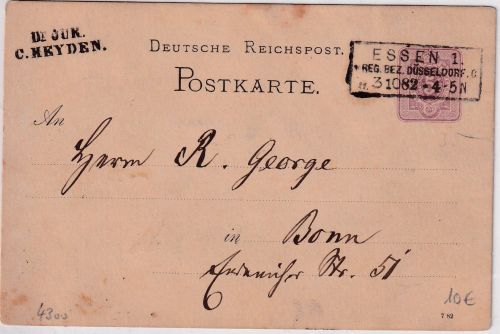 Dr. JUR.
C. HEYDEN.
DEUTSCHE REICHSPOST.
POSTKARTE.
ESSEN 1.
* REG. BEZ. DÜSSELDORF. G
3 10 82 - 4-5 N
An
Herrn R. George
in Bonn
Endenicher Str. 51
4300
10€
7 82